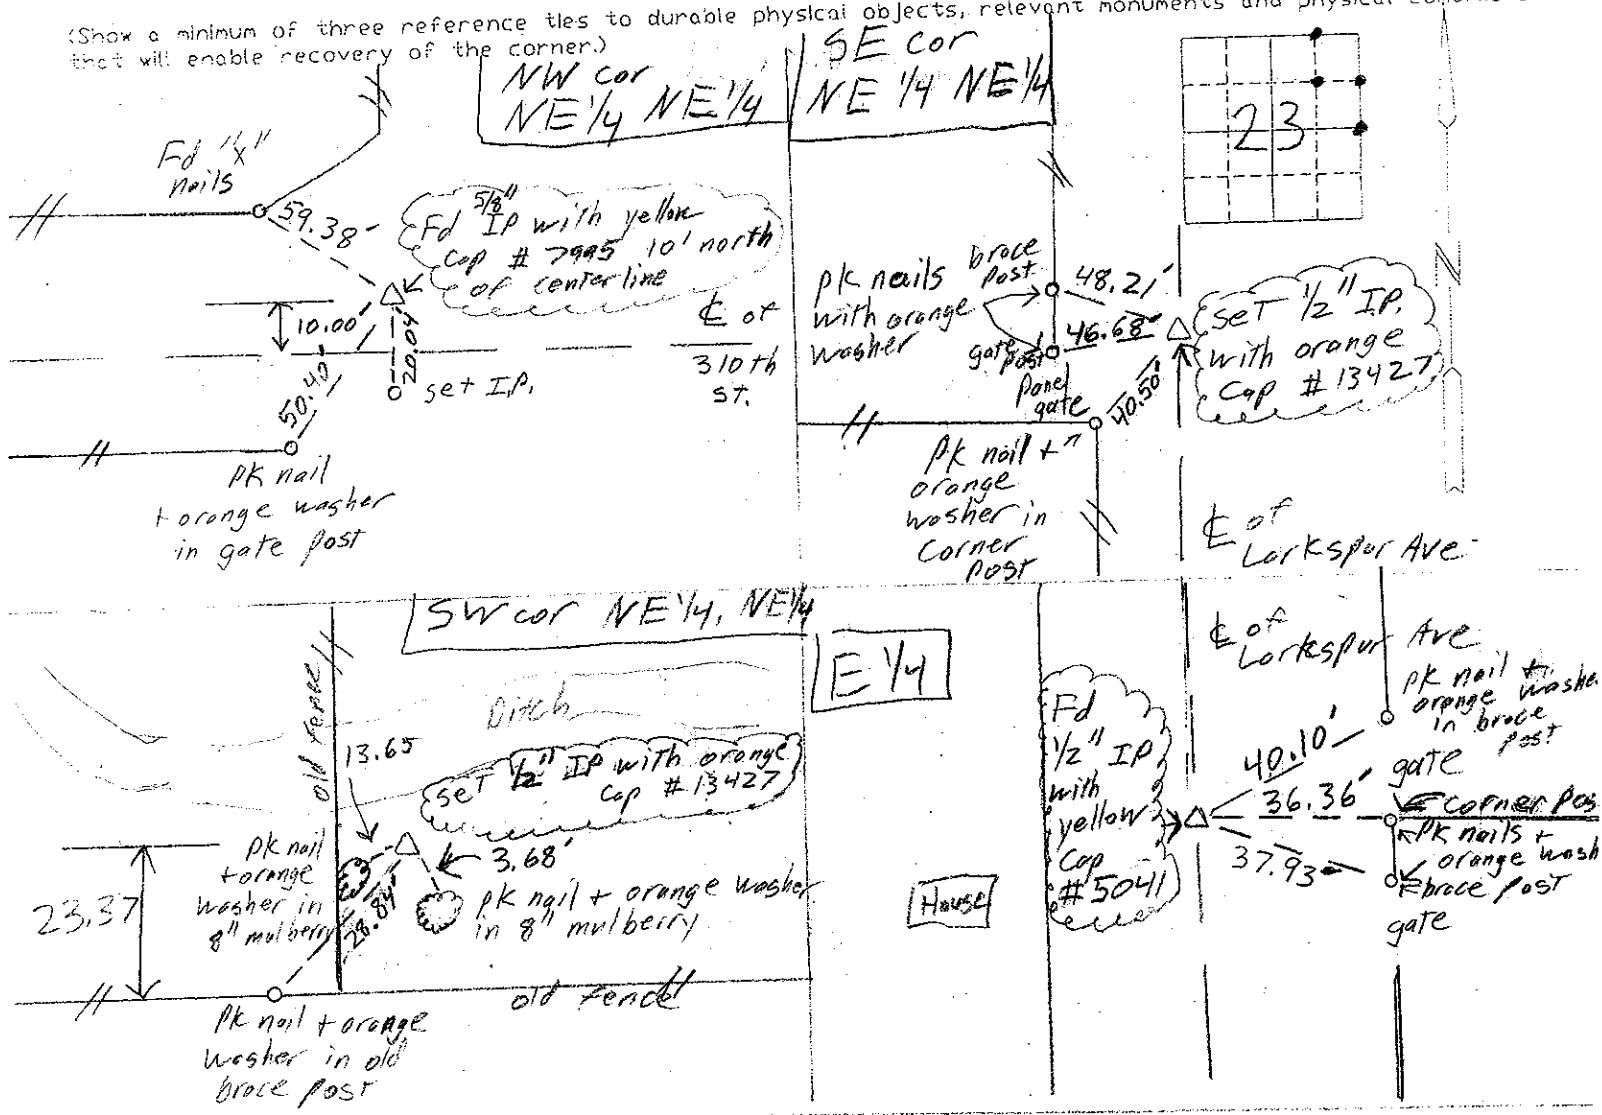 (Show a minimum of three reference ties to durable physical objects, relevant monuments and physical
that will enable recovery of the corner.)
NW cor
NE 1/4 NE 1/4
Fd "X"
nails
59.38'
Fd 5/8" IP with yellow
Cap # 7995 10' north
of centerline
10.00'
20.04
50.40'
set I.P.
℄ of
310th
st.
PK nail
+ orange washer
in gate post
SE cor
NE 1/4 NE 1/4
23
N
PK nails
with orange
washer
brace
post
48.21'
46.68'
gate
post
Panel
gate
40.50'
SET 1/2" I.P.
with orange
Cap # 13427
PK nail +
orange
washer in
corner
post
℄ of
Larkspur Ave
SW cor NE 1/4, NE 1/4
old fence
Ditch
13.65
SET 1/2" IP with orange
Cap # 13427
PK nail
+ orange
washer in
8" mulberry
3.68'
PK nail + orange washer
in 8" mulberry
23.37
old fence
PK nail + orange
washer in old
brace post
E 1/4
House
Fd
1/2" IP
with
yellow
Cap
# 5041
℄ of
Larkspur Ave
PK nail +
orange washe
in brace
post
40.10'
gate
36.36'
corner pos
PK nails +
orange wash
37.93
brace post
gate